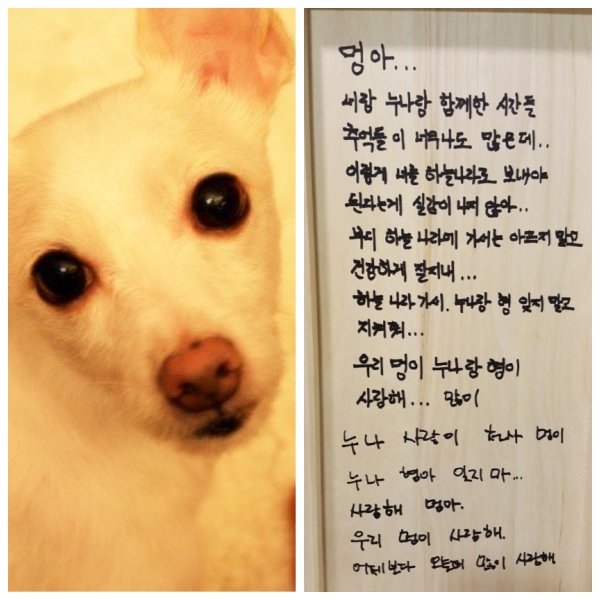 멍아...
너랑 누나랑 함께한 시간들
추억들이 너무나도 많은데..
이렇게 너를 하늘나라로 보내야
된다는게 실감이 나지 않아..
부디 하늘 나라에 가서는 아프지 말고
건강하게 잘지내...
하늘 나라 가서. 누나랑 형 잊지 말고
지켜줘...
우리 멍이 누나랑 형이
사랑해... 많이
누나 사랑이 천사 멍이
누나 형아 잊지 마...
사랑해 멍아.
우리 멍이 사랑해.
어제보다 오늘 더 많이 사랑해